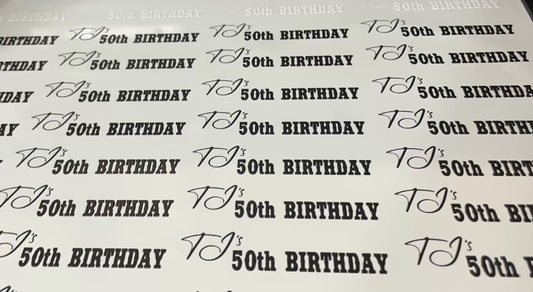 50th BIRTHDAY 50th BIRTHDAY 50th BIRTHDAY
BIRTHDAY TJ's 50th BIRTHDAY TJ's 50th BIRTHDAY TJ's 50th BIRTHDAY
BIRTHDAY TJ's 50th BIRTHDAY TJ's 50th BIRTHDAY TJ's 50th BIRTHDAY
TJ's 50th BIRTHDAY TJ's 50th BIRTHDAY TJ's 50th BIRTHDAY
TJ's 50th BIRTHDAY TJ's 50th BIRTHDAY TJ's 50th BIRTHDAY
TJ's 50th BIRTHDAY TJ's 50th BIRTHDAY TJ's 50th BIRTHDAY
TJ's 50th BIRTHDAY TJ's 50th BIRTHDAY TJ's 50th
TJ's 50th BIRTHDAY TJ's 50th BIRTHDAY TJ's 50th